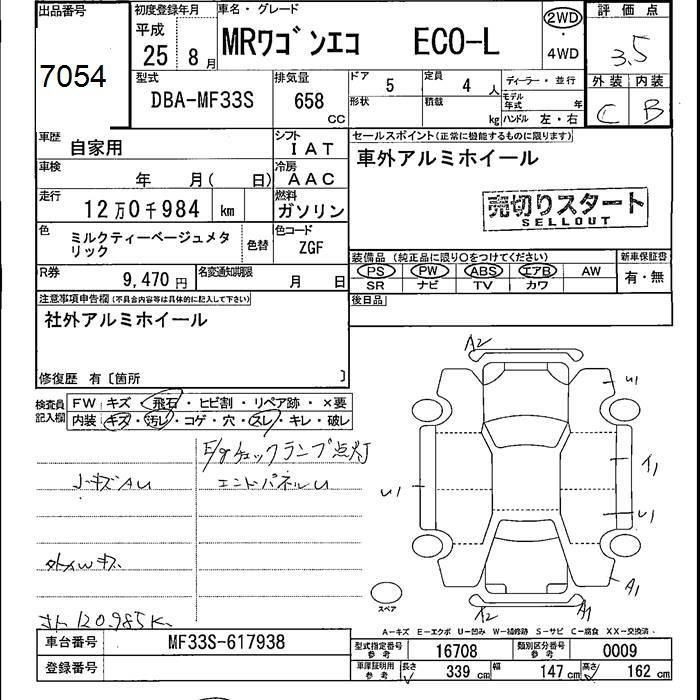 出品番号
7054
初度登録年月
平成
25 8 月
車名・グレード
MRワゴンエコ ECO-L
2WD
・
4WD
評価点
3.5
外装 内装
C B
型式
DBA-MF33S
排気量
658
CC
ドア
5
定員
4 人
ディーラー・並行
モデル年式 年
形状
積載
kg
ハンドル 左・右
車歴
自家用
シフト
IAT
車検
年 月( 日)
冷房
AAC
走行
12万0千984 km
燃料
ガソリン
色
ミルクティーベージュメタリック
色替
色コード
ZGF
R券
9,470 円
名変通知期限
月 日
セールスポイント(正常に機能するものに限ります)
車外アルミホイール
売切りスタート
SELLOUT
装備品 (純正品に限り○をつけてください)
新車保証書
PS PW ABS エアB AW
SR ナビ TV カワ
有・無
後日品
注意事項申告欄(不具合内容等は具体的に記入して下さい)
社外アルミホイール
修復歴 有〔箇所 〕
検査員記入欄
FW キズ・飛石・ヒビ割・リペア跡・×要
内装 キズ・汚レ・コゲ・穴・スレ・キレ・破レ
E/gチェックランプ点灯
エンドパネルU
キズAU
120,985K
A2
U1
U1
イ1
U1
A1
X2
A1
スペア
A-キズ E-エクボ U-凹み W-補修跡 S-サビ C-腐食 XX-交換済
車台番号
MF33S-617938
登録番号
型式指定番号参考
16708
類別区分番号参考
0009
車庫証明用参考
長さ 339 cm
幅 147 cm
高さ 162 cm